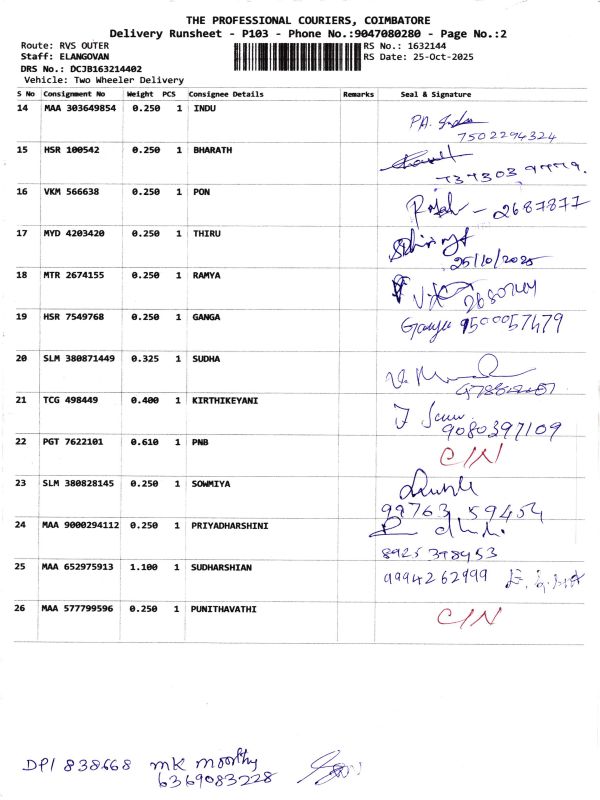 THE PROFESSIONAL COURIERS, COIMBATORE
Delivery Runsheet - P103 - Phone No.:9047080280 - Page No.:2
Route: RVS OUTER
Staff: ELANGOVAN
DRS No.: DCJB163214402
Vehicle: Two Wheeler Delivery
RS No.: 1632144
RS Date: 25-Oct-2025
S No Consignment No Weight PCS Consignee Details Remarks Seal & Signature
14 MAA 303649854 0.250 1 INDU
PA.
7502294324
15 HSR 100542 0.250 1 BHARATH
16 VKM 566638 0.250 1 PON
- 2687877
17 MYD 4203420 0.250 1 THIRU
25/10/2025
18 MTR 2674155 0.250 1 RAMYA
19 HSR 7549768 0.250 1 GANGA
20 SLM 380871449 0.325 1 SUDHA
21 TCG 498449 0.400 1 KIRTHIKEYANI
9080397109
22 PGT 7622101 0.610 1 PNB
C/N
23 SLM 380828145 0.250 1 SOWMIYA
99763 59454
24 MAA 9000294112 0.250 1 PRIYADHARSHINI
8925378453
25 MAA 652975913 1.100 1 SUDHARSHIAN
9994262999
26 MAA 577799596 0.250 1 PUNITHAVATHI
C/N
DPI 838668 MK Moorthy
6369083228